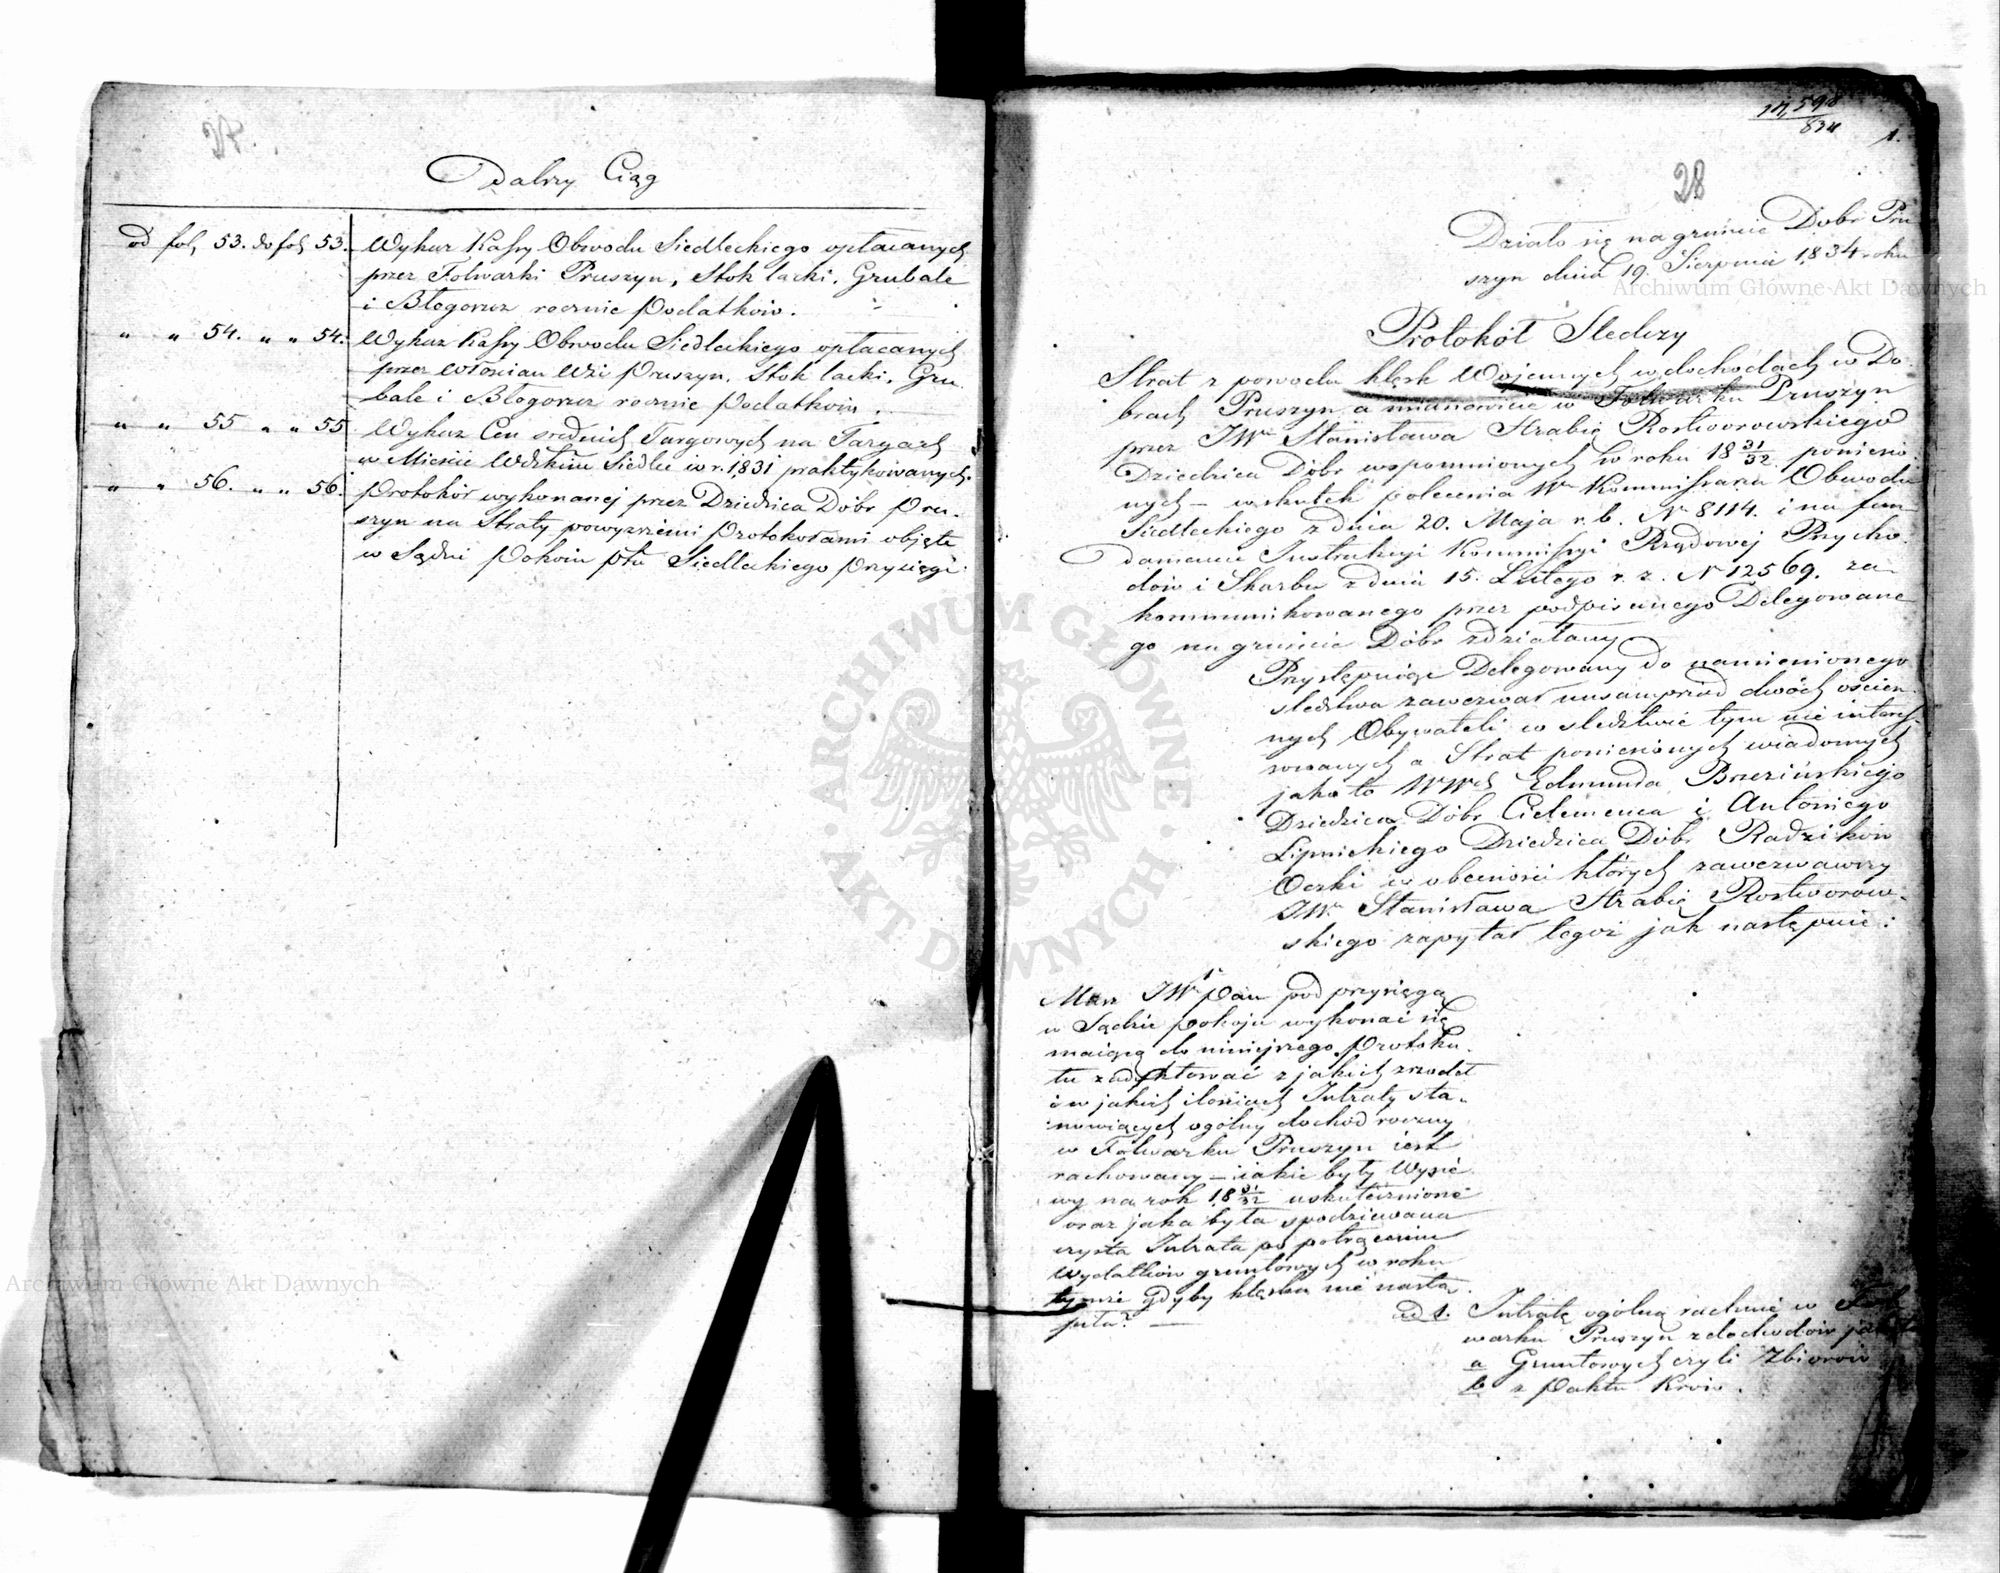 Dalszy Ciąg
od fol, 53. do fol, 53. Wykaz Kassy Obwodu Siedleckiego opłacanych
przez Folwarki Pruszyn, Stok lacki, Grubale
i Błogoszcz rocznie Podatków.
" " 54. " " 54. Wykaz Kassy Obwodu Siedleckiego opłacanych
przez Włościan Wsi Pruszyn, Stok lacki, Gru
bale i Błogoszcz rocznie Podatków.
" " 55 " " 55 Wykaz Cen srednich Targowych na Targach
w Mieście Wdzkim Siedlce w r. 1831 praktykowanych.
" " 56. " " 56. Protokół wykonanej przez Dziedzica Dobr Pru-
szyn na Straty powyższemi Protokołami objęte
w Sądzie Pokoiu ptu Siedleckiego Przysięgi.
17,598
834
1.
28
Działo się na gruncie Dobr Pru
szyn dnia 19. Sierpnia 1834 roku
Protokół Sledczy
Strat z powodu klęsk Wojennych w dochodach w Do
brach Pruszyn a mianowicie w Folwarku Pruszyn
przez JWo Stanisława Hrabię Rostworowskiego
Dziedzica Dóbr wspomnionych w roku 18 31/32 poniesio
nych – wskutek polecenia Wo Kommissarza Obwodu
Siedleckiego z dnia 20. Maja r. b. No 8114. i na fun
damencie Instrukcyi Kommissyi Rządowej Przycho
dów i Skarbu z dnia 15. Lutego r. z. N 12569. za-
kommunikowanego przez podpisanego Delegowane
go na gruncie Dóbr zdziałany
Przystępuiąc Delegowany do namienionego
sledztwa zawezwał nasamprzód dwóch ościen
nych Obywateli w sledztwie tym nie interes-
sowanych a Strat poniesionych wiadomych
jako to WWch Edmunda Brzezińskiego
Dziedzica Dóbr Cielemenca i Antoniego
Lipnickiego Dziedzica Dóbr Radzików
Oczki w obecności których zawezwawszy
JWo Stanisława Hrabię Rostworow-
skiego zapytał tegoż jak następuie:
1o
Masz JWo Pan pod przysięgą
w Sądzie pokoju wykonać się
maiącą do niniejszego Protoku
łu zadyktować z jakich zrzodeł
i w jakich ilościach Intraty sta-
nowiących ogólny dochód roczny
w Folwarku Pruszyn iest
rachowany – iakie były Wysie
wy na rok 18 31/32 uskutecznione
oraz jaka była spodziewana
czysta Intrata po potrąceniu
Wydatków gruntowych w roku
tymże gdyby klęska nie nastą
piła? –
ad 1. Intratę ogólną rachuię w Fol
warku Pruszyn z dochodów jako to
a Gruntowych czyli Zbiorów
b z Paktu Krów.
Archiwum Główne Akt Dawnych
Archiwum Główne Akt Dawnych
ARCHIWUM GŁÓWNE
· AKT DAWNYCH ·